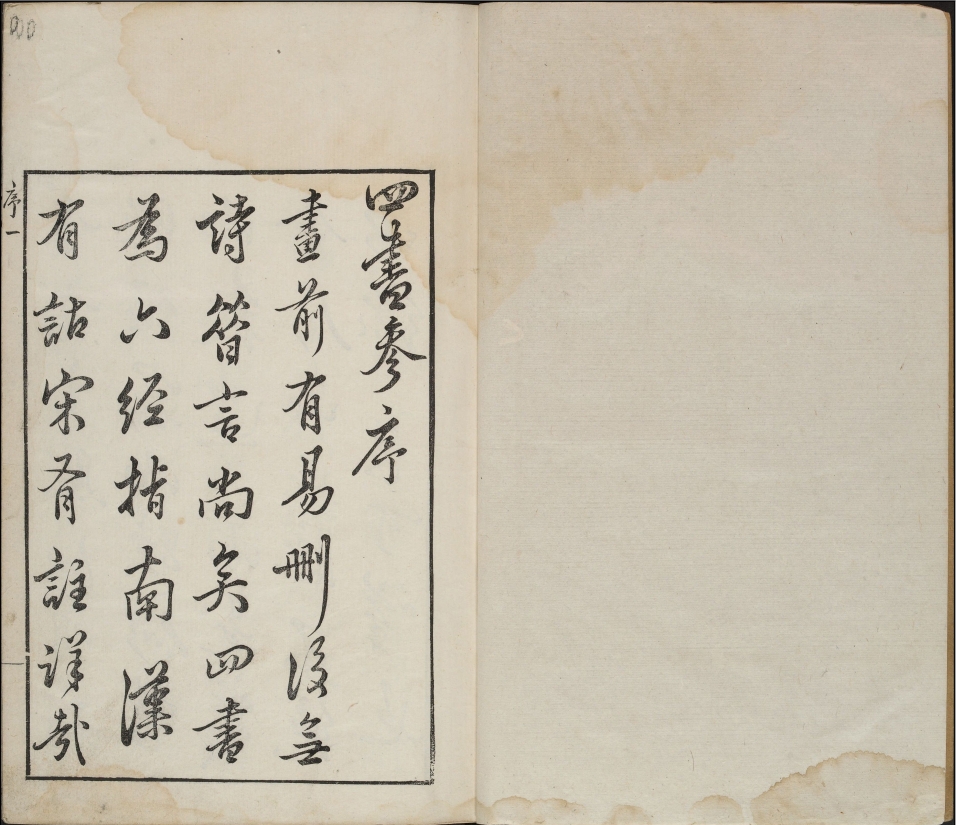 四書參序
畫前有易刪後無
詩言尚矣四書
為六經指南漢
有詁宋有註詳哉
序一